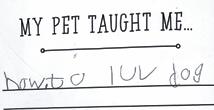 MY PET TAUGHT ME...
how to luv dog